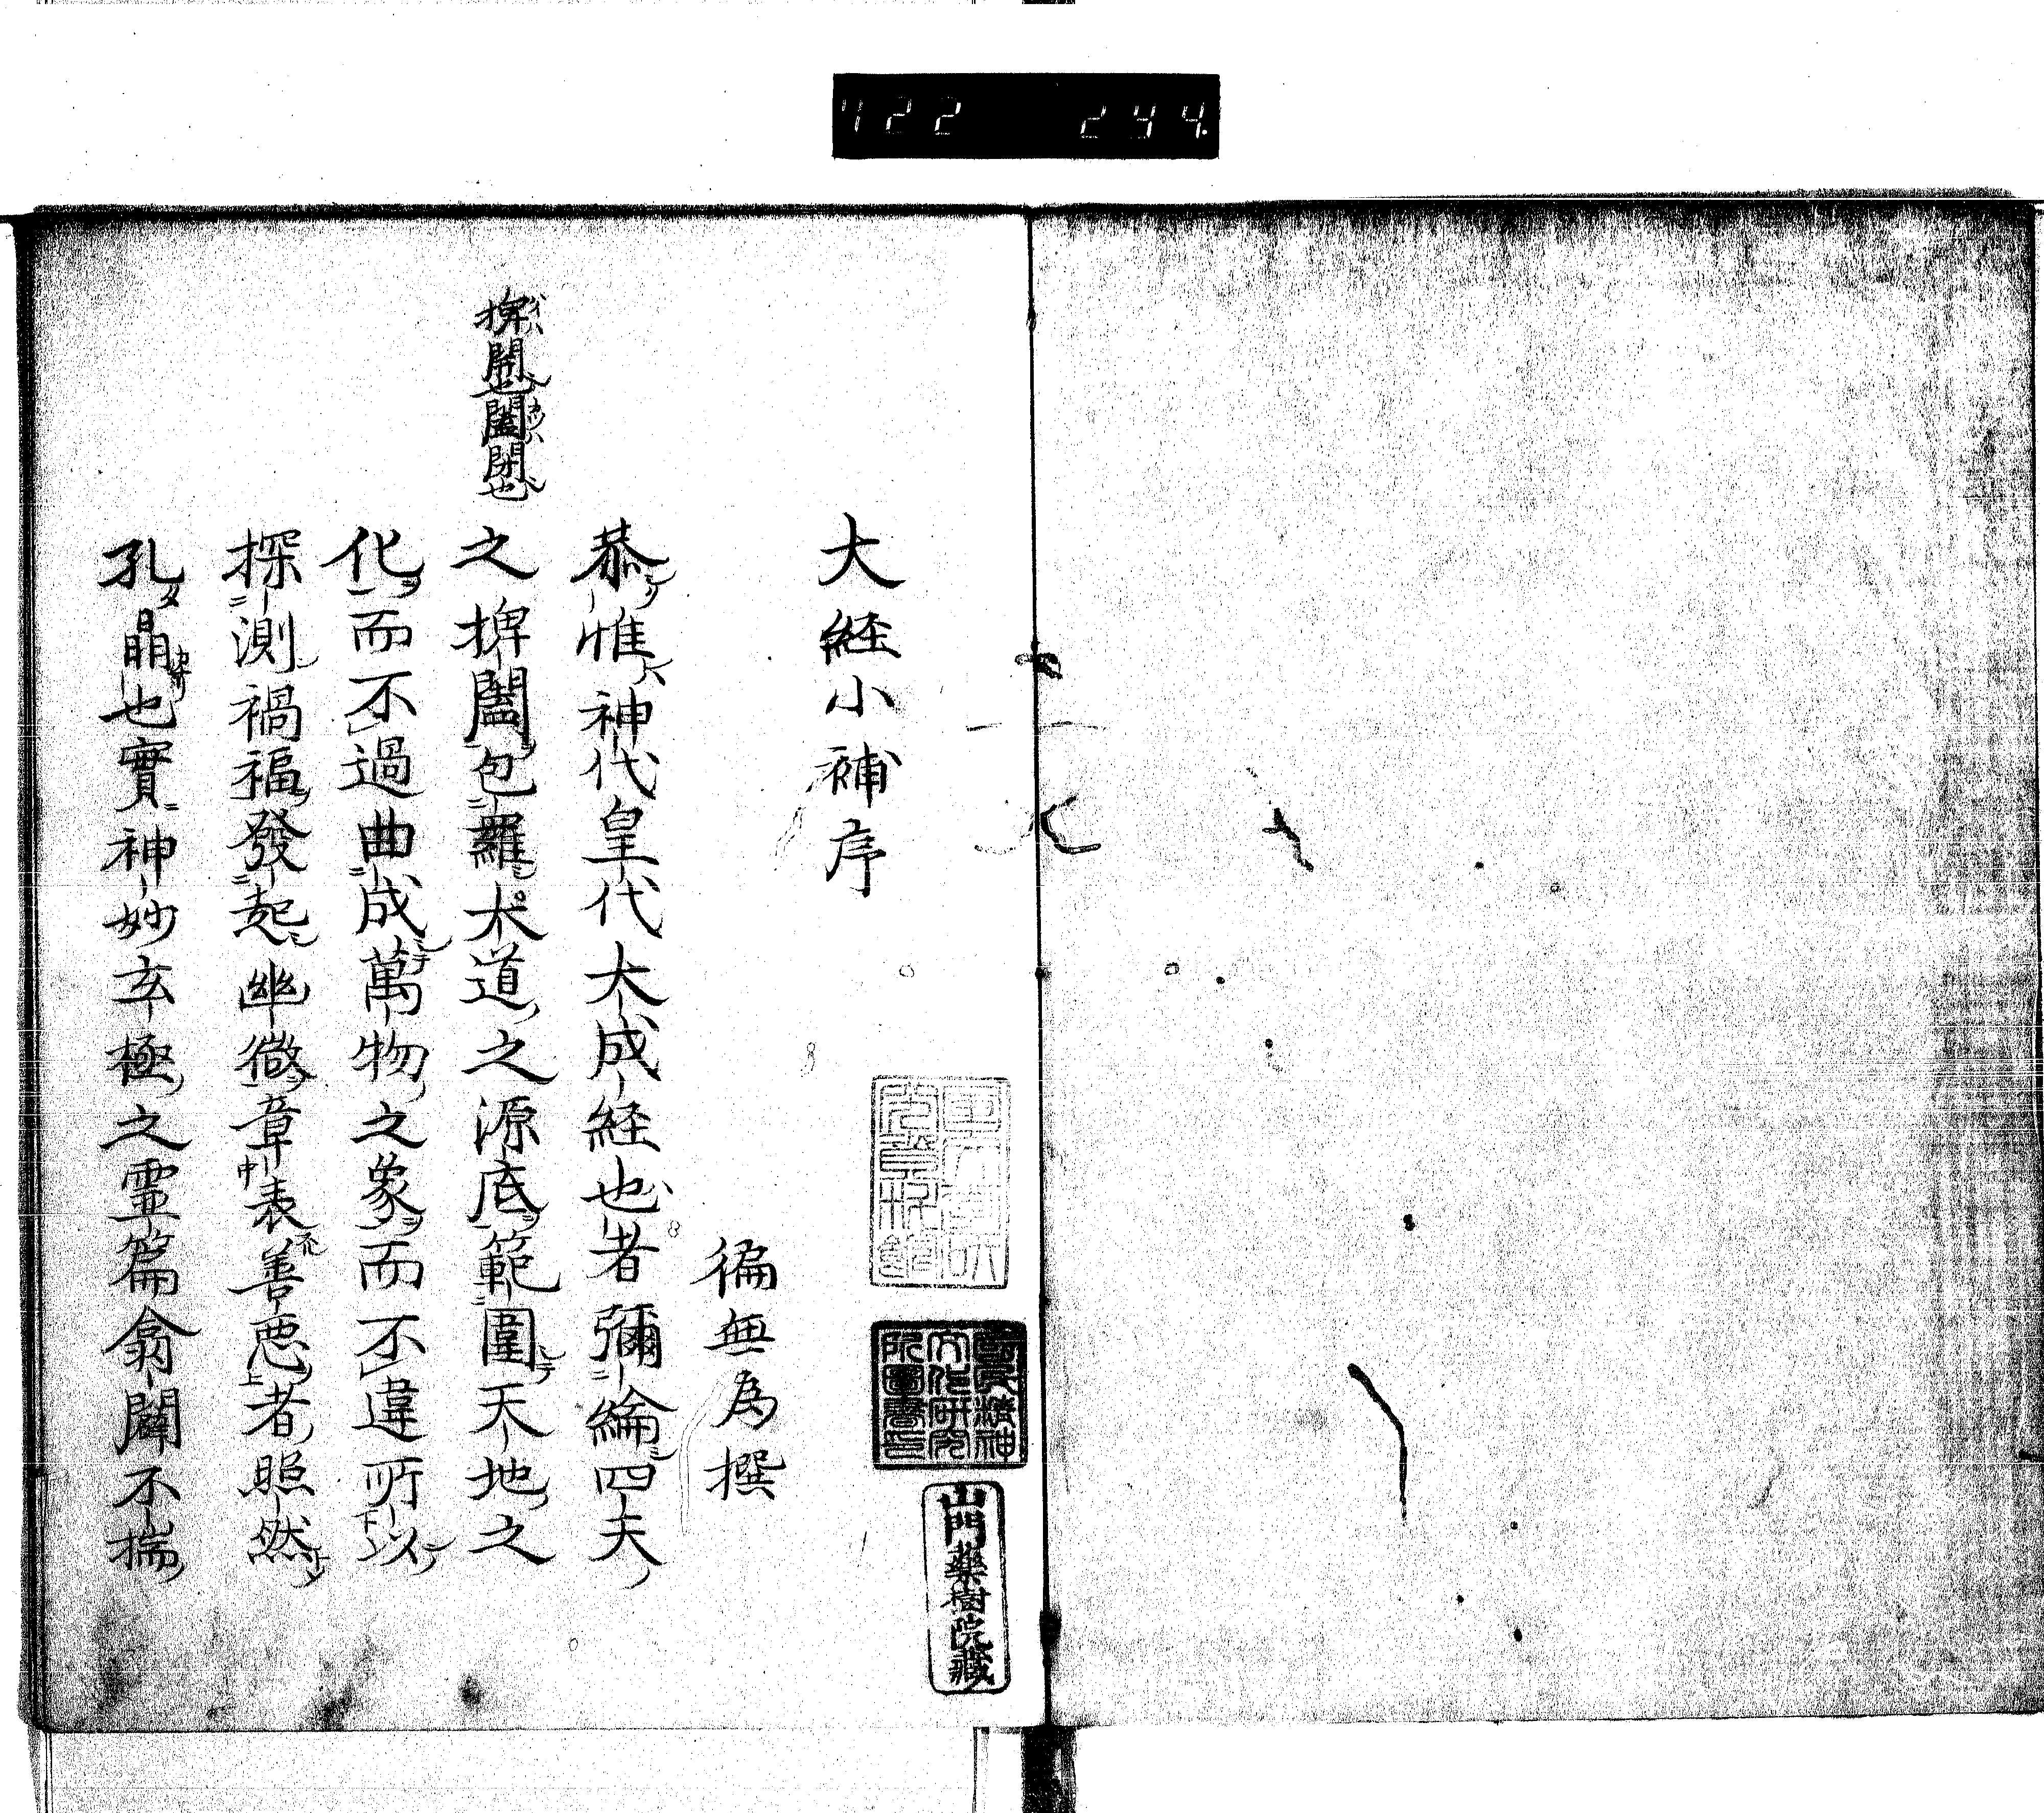 722 244
大経小補序
徧無為撰
恭惟神代皇代大成経也者彌綸四夫
之捭闔包羅大道之源底範圍天地之
化而不過曲成萬物之象而不違所以
探測禍福發起幽微章表善悪者照然
孔晶也實神妙玄極之靈篇翕闢不揣
捭開也闔閉也
國民精神文化研究所圖書印
山門藥樹院藏